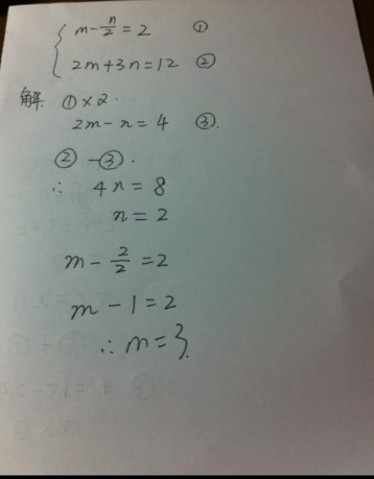 m-n/2=2 ①
2m+3n=12 ②
解 ①×2.
2m-n=4 ③.
②-③.
∴ 4n=8
n=2
m-2/2=2
m-1=2
∴m=3.